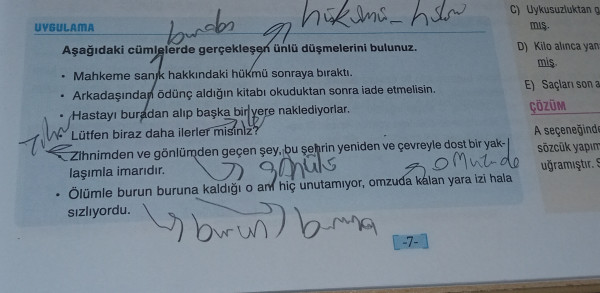 UYGULAMA
Aşağıdaki cümlelerde gerçekleşen ünlü düşmelerini bulunuz.
• Mahkeme sanık hakkındaki hükmü sonraya bıraktı.
• Arkadaşından ödünç aldığın kitabı okuduktan sonra iade etmelisin.
• Hastayı buradan alıp başka bir yere naklediyorlar.
• Lütfen biraz daha ilerler misiniz?
• Zihnimden ve gönlümden geçen şey, bu şehrin yeniden ve çevreyle dost bir yak-
laşımla imarıdır.
• Ölümle burun buruna kaldığı o anı hiç unutamıyor, omzunda kalan yara izi hala
sızlıyordu.
burun
-7-
C) Uykusuzluktan
mış.
D) Kilo alınca
miş.
E) Saçları son
ÇÖZÜM
A seçeneğinde
sözcük
uğramıştır.